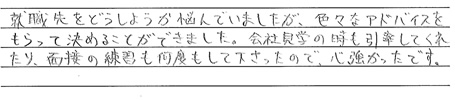 就職先をどうしようか悩んでいましたが、色々なアドバイスを
もらって決めることができました。会社見学の時も引率してくれ
たり、面接の練習も何度もして下さったので、心強かったです。